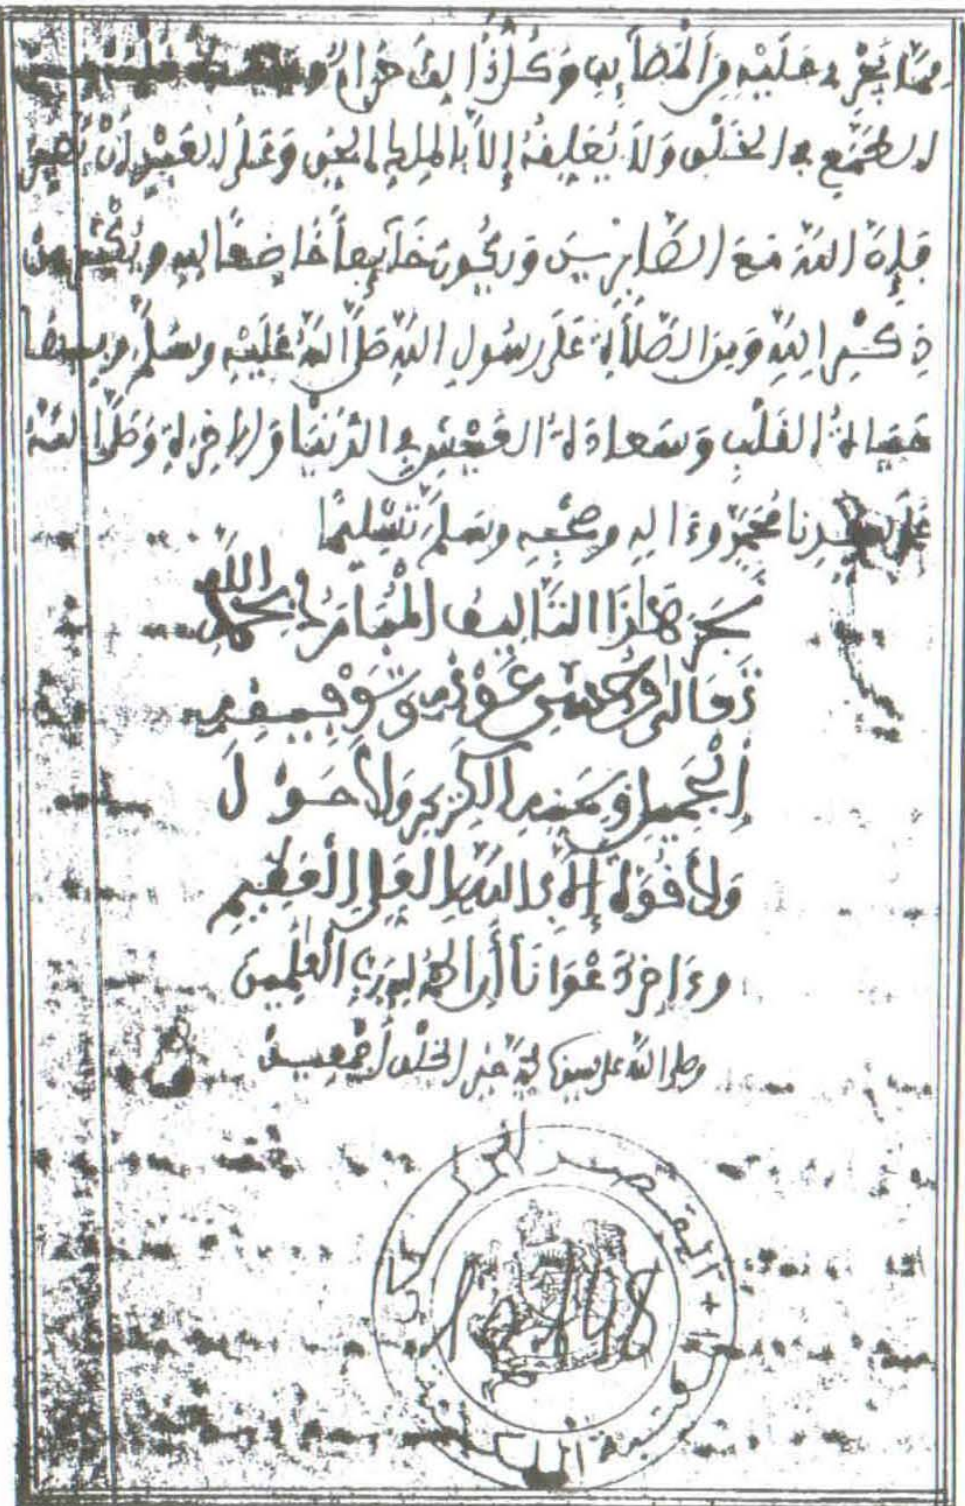 مما يجري عليه من المصايب وكل ذالك حرام
الطمع في الخلق ولا يعلقه إلا بالملك الحق وعلى العبد أن يصبر
فإن الله مع الصابرين ويكون خايفا خاضعا لله ويكثر من
ذكر الله ومن الصلاة على رسول الله صلى الله عليه وسلم
حياة القلب وسعادة العيش في الدنيا والاخرة وصلى الله
على سيدنا محمد وءاله وصحبه وسلم تسليما
نجز هاذا التاليف المبارك بحمد الله
تعالى وحسن عونه وتوفيقه
الجميل ويمنه الكريم ولا حول
ولا قوة إلا بالله العلي العظيم
وءاخر دعوانا أن الحمد لله رب العلمين
وصلى الله على سيدنا محمد خير الخلق أجمعين
القصر
الملكية